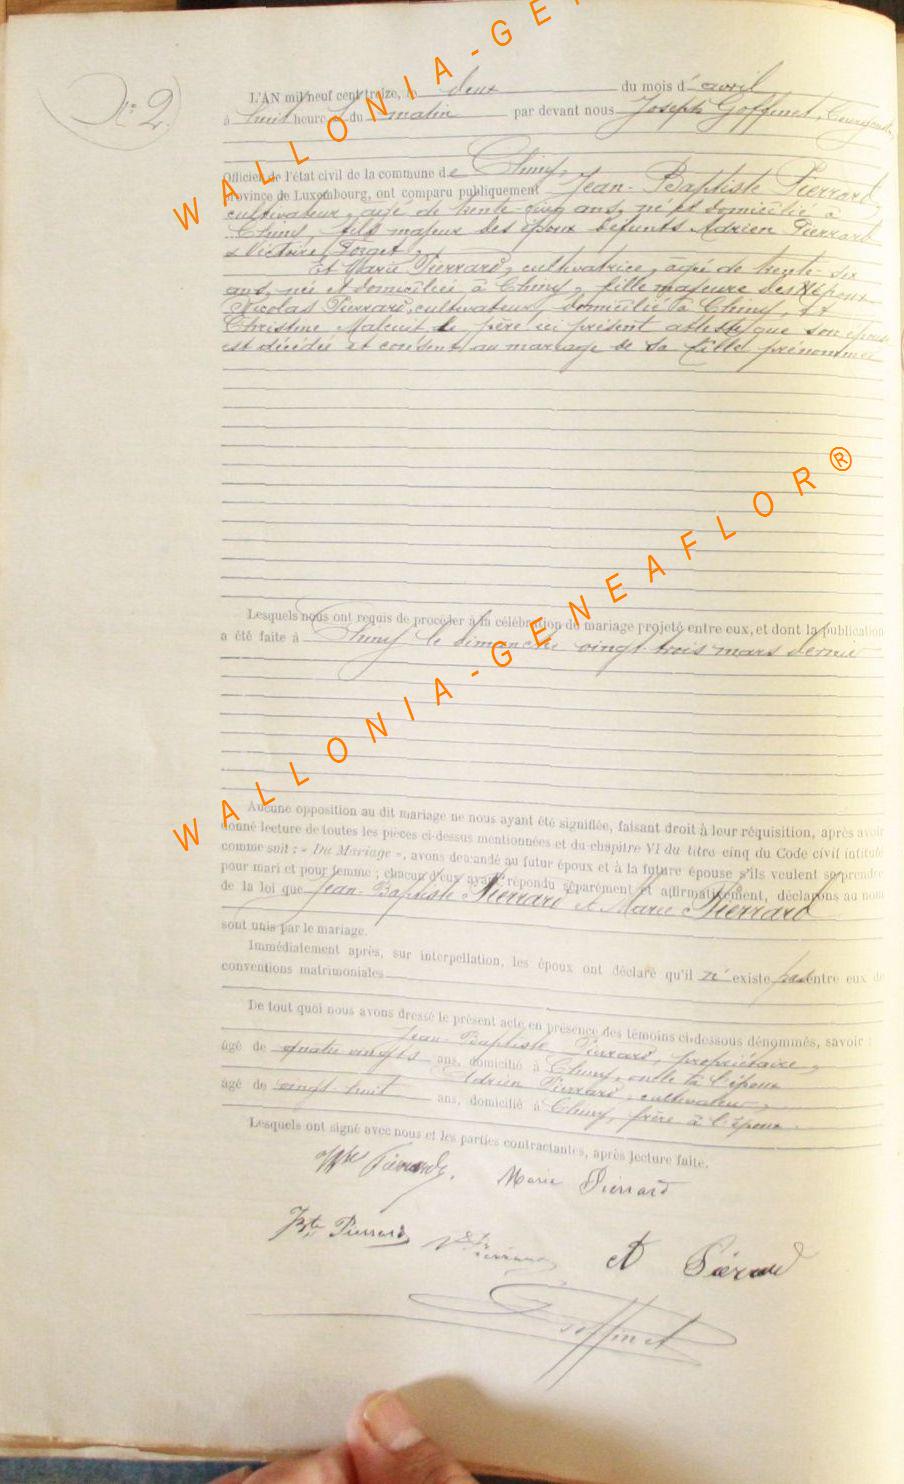 N° 2.
L'AN mil neuf cent treize, le deux du mois d'avril
à huit heures du matin par devant nous Joseph Goffinet, Bourgmestre,
Officier de l'état civil de la commune de Chiny,
province de Luxembourg, ont comparu publiquement Jean-Baptiste Pierrard,
cultivateur, âgé de trente-cinq ans, né et domicilié à
Chiny, fils majeur des époux défunts Adrien Pierrard
& Victoire Forget,
Et Marie Pierrard, cultivatrice, âgée de trente-six
ans, née et domiciliée à Chiny, fille majeure des époux
Nicolas Pierrard, cultivateur, domicilié à Chiny, et
Christine le père ici présent atteste que son épouse
est décédée et consent au mariage de sa fille prénommée
Lesquels nous ont requis de procéder à la célébration du mariage projeté entre eux, et dont la publication
a été faite à Chiny le dimanche vingt trois mars dernier
Aucune opposition au dit mariage ne nous ayant été signifiée, faisant droit à leur réquisition, après avoir
donné lecture de toutes les pièces ci-dessus mentionnées et du chapitre VI du titre cinq du Code civil intitulé
comme suit : « Du Mariage », avons demandé au futur époux et à la future épouse s'ils veulent se prendre
pour mari et pour femme ; chacun d'eux ayant répondu séparément et affirmativement, déclarons au nom
de la loi que Jean-Baptiste Pierrard et Marie Pierrard
sont unis par le mariage.
Immédiatement après, sur interpellation, les époux ont déclaré qu'il n'existe pas entre eux de
conventions matrimoniales
De tout quoi nous avons dressé le présent acte en présence des témoins ci-dessous dénommés, savoir :
Jean Baptiste Pierrard, propriétaire,
âgé de quatre vingts ans, domicilié à Chiny, oncle à l'époux
Adrien Pierrard, cultivateur,
âgé de vingt huit ans, domicilié à Chiny, frère à l'époux.
Lesquels ont signé avec nous et les parties contractantes, après lecture faite.
Marie Pierrard
Jbte Pierrard
A Piérard
Goffinet
WALLONIA-GENEAFLOR®
WALLONIA-GE